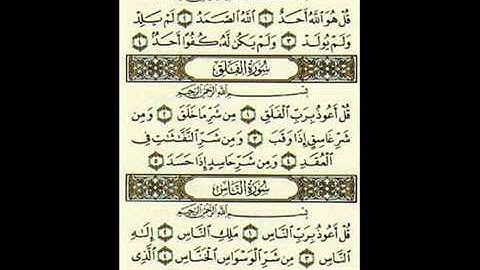 قُلْ هُوَ ٱللَّهُ أَحَدٌ ١ ٱللَّهُ ٱلصَّمَدُ ٢ لَمْ يَلِدْ
وَلَمْ يُولَدْ ٣ وَلَمْ يَكُن لَّهُۥ كُفُوًا أَحَدٌۢ ٤
سُورَةُ الفَلَقِ
بِسْمِ ٱللَّهِ ٱلرَّحْمَٰنِ ٱلرَّحِيمِ
قُلْ أَعُوذُ بِرَبِّ ٱلْفَلَقِ ١ مِن شَرِّ مَا خَلَقَ ٢ وَمِن
شَرِّ غَاسِقٍ إِذَا وَقَبَ ٣ وَمِن شَرِّ ٱلنَّفَّٰثَٰتِ فِى
ٱلْعُقَدِ ٤ وَمِن شَرِّ حَاسِدٍ إِذَا حَسَدَ ٥
سُورَةُ النَّاسِ
بِسْمِ ٱللَّهِ ٱلرَّحْمَٰنِ ٱلرَّحِيمِ
قُلْ أَعُوذُ بِرَبِّ ٱلنَّاسِ ١ مَلِكِ ٱلنَّاسِ ٢ إِلَٰهِ
ٱلنَّاسِ ٣ مِن شَرِّ ٱلْوَسْوَاسِ ٱلْخَنَّاسِ ٤ ٱلَّذِى